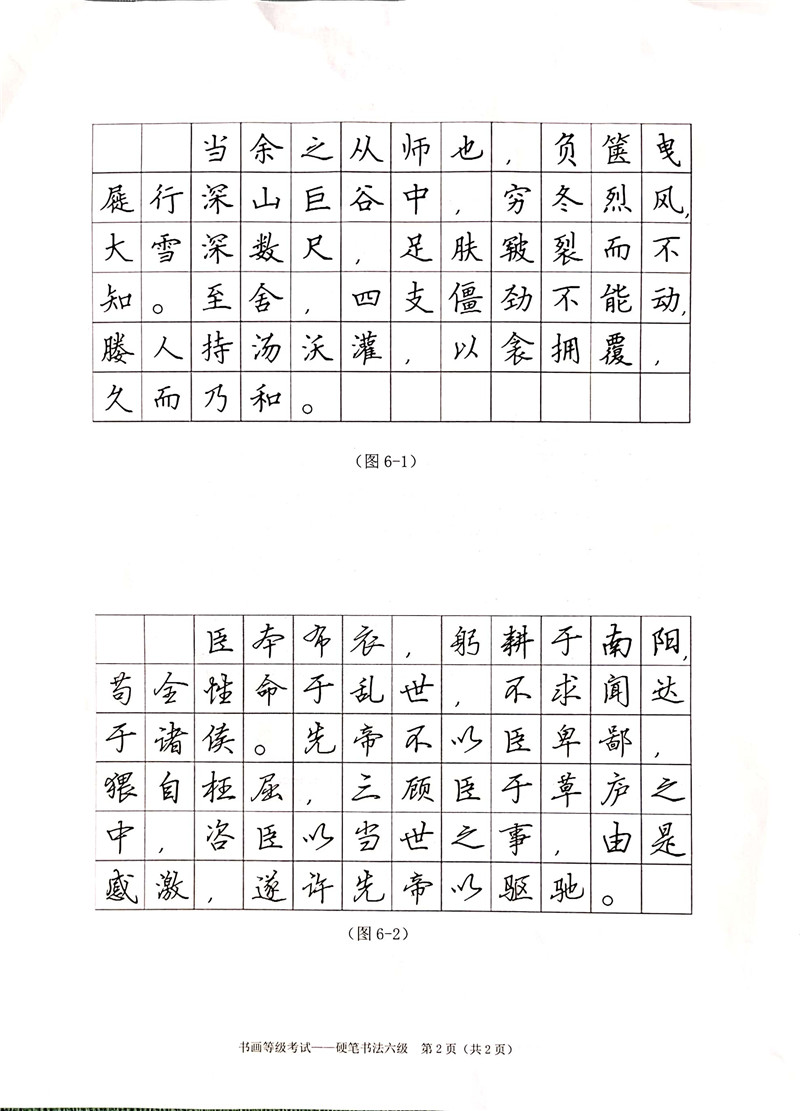 当余之从师也，负箧曳
屣行深山巨谷中，穷冬烈风，
大雪深数尺，足肤皲裂而不
知。至舍，四支僵劲不能动，
媵人持汤沃灌，以衾拥覆，
久而乃和。
（图6-1）
臣本布衣，躬耕于南阳，
苟全性命于乱世，不求闻达
于诸侯。先帝不以臣卑鄙，
猥自枉屈，三顾臣于草庐之
中，咨臣以当世之事，由是
感激，遂许先帝以驱驰。
（图6-2）
书画等级考试——硬笔书法六级 第2页（共2页）